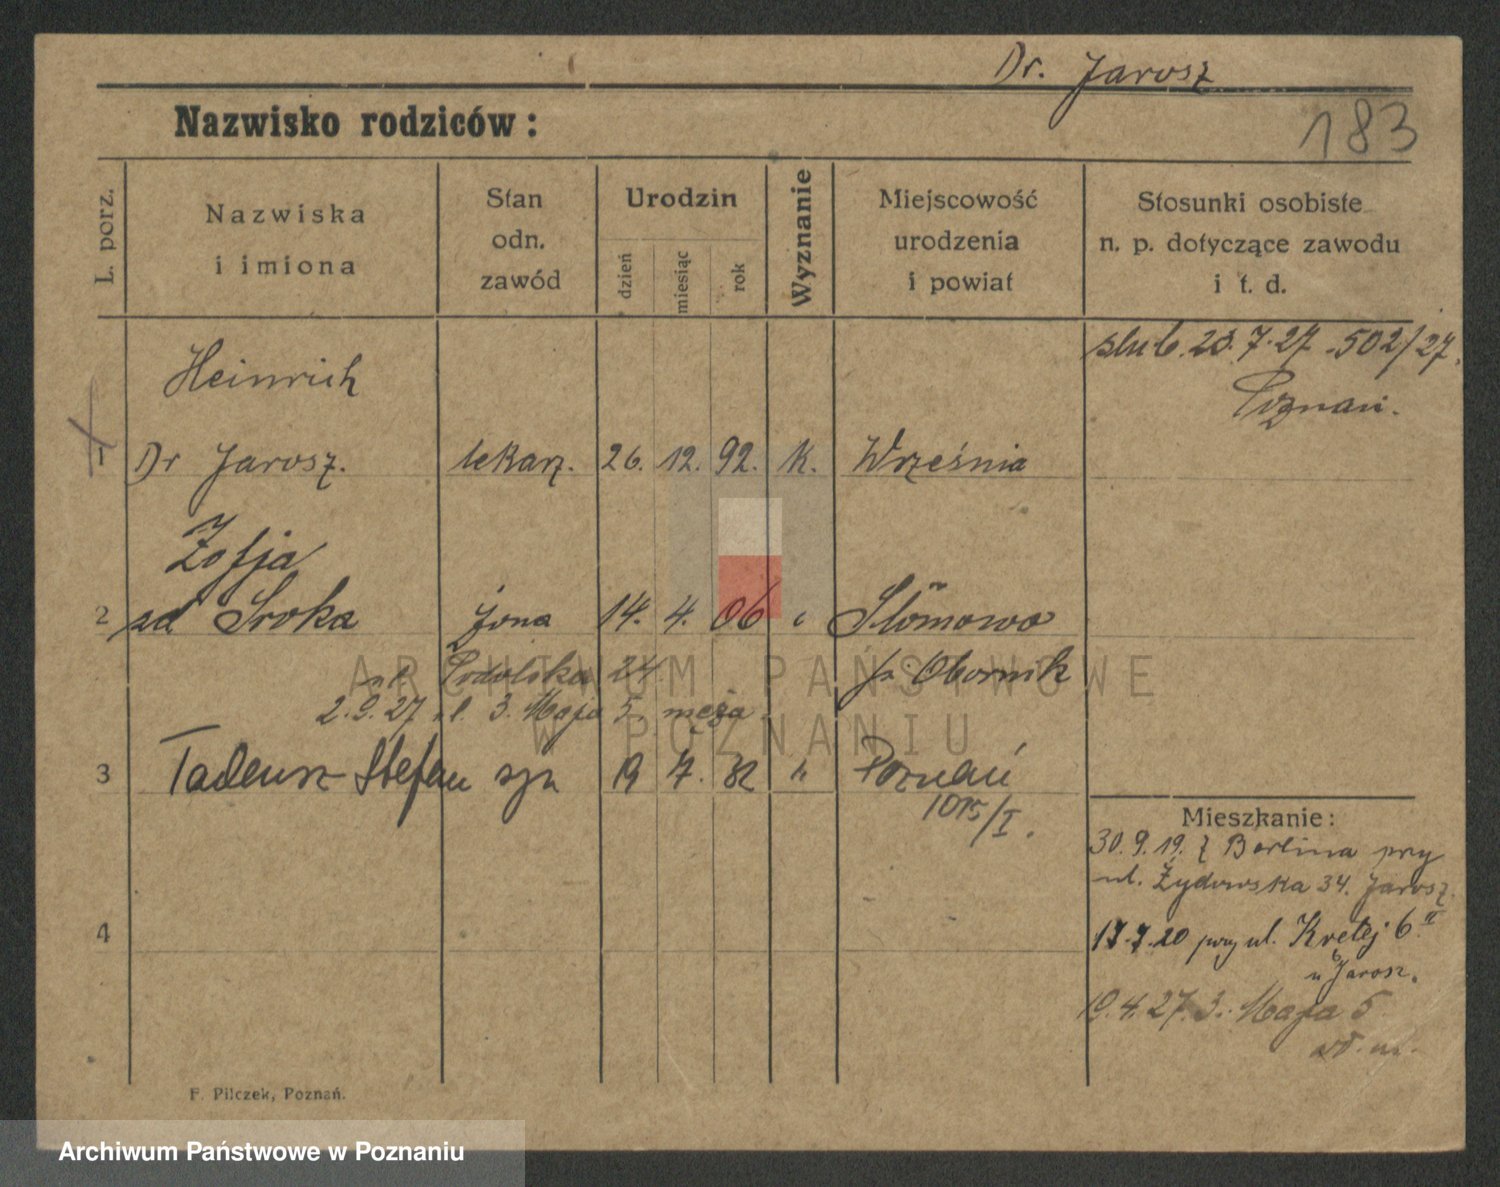 Dr. Jarosz
183
Nazwisko rodziców:
L. porz.
Nazwiska
i imiona
Stan
odn.
zawód
Urodzin
dzień
miesiąc
rok
Wyznanie
Miejscowość
urodzenia
i powiat
Stosunki osobiste
n. p. dotyczące zawodu
i t. d.
slub. 23.7.27 - 502/27.
Poznań.
Heinrich
1 Dr Jarosz. lekarz. 26. 12. 92. k. Września
Zofja
2 zd Sroka żona 14. 4. 06 " Słomowo
Podolska 24 p. Obornik
2.9.27 3. Maja 5. męża
3 Tadeusz Stefan syn 19 7. 32 " Poznań
1015/I.
Mieszkanie:
30.9.19. z Berlina przy
ul. Żydowska 34. Jarosz.
4
17.7.20 przy ul. Kretej 6 II
u Jarosz.
19.4.27. 3. Maja 5
F. Pilczek, Poznań.
ARCHIWUM PAŃSTWOWE
W POZNANIU
Archiwum Państwowe w Poznaniu